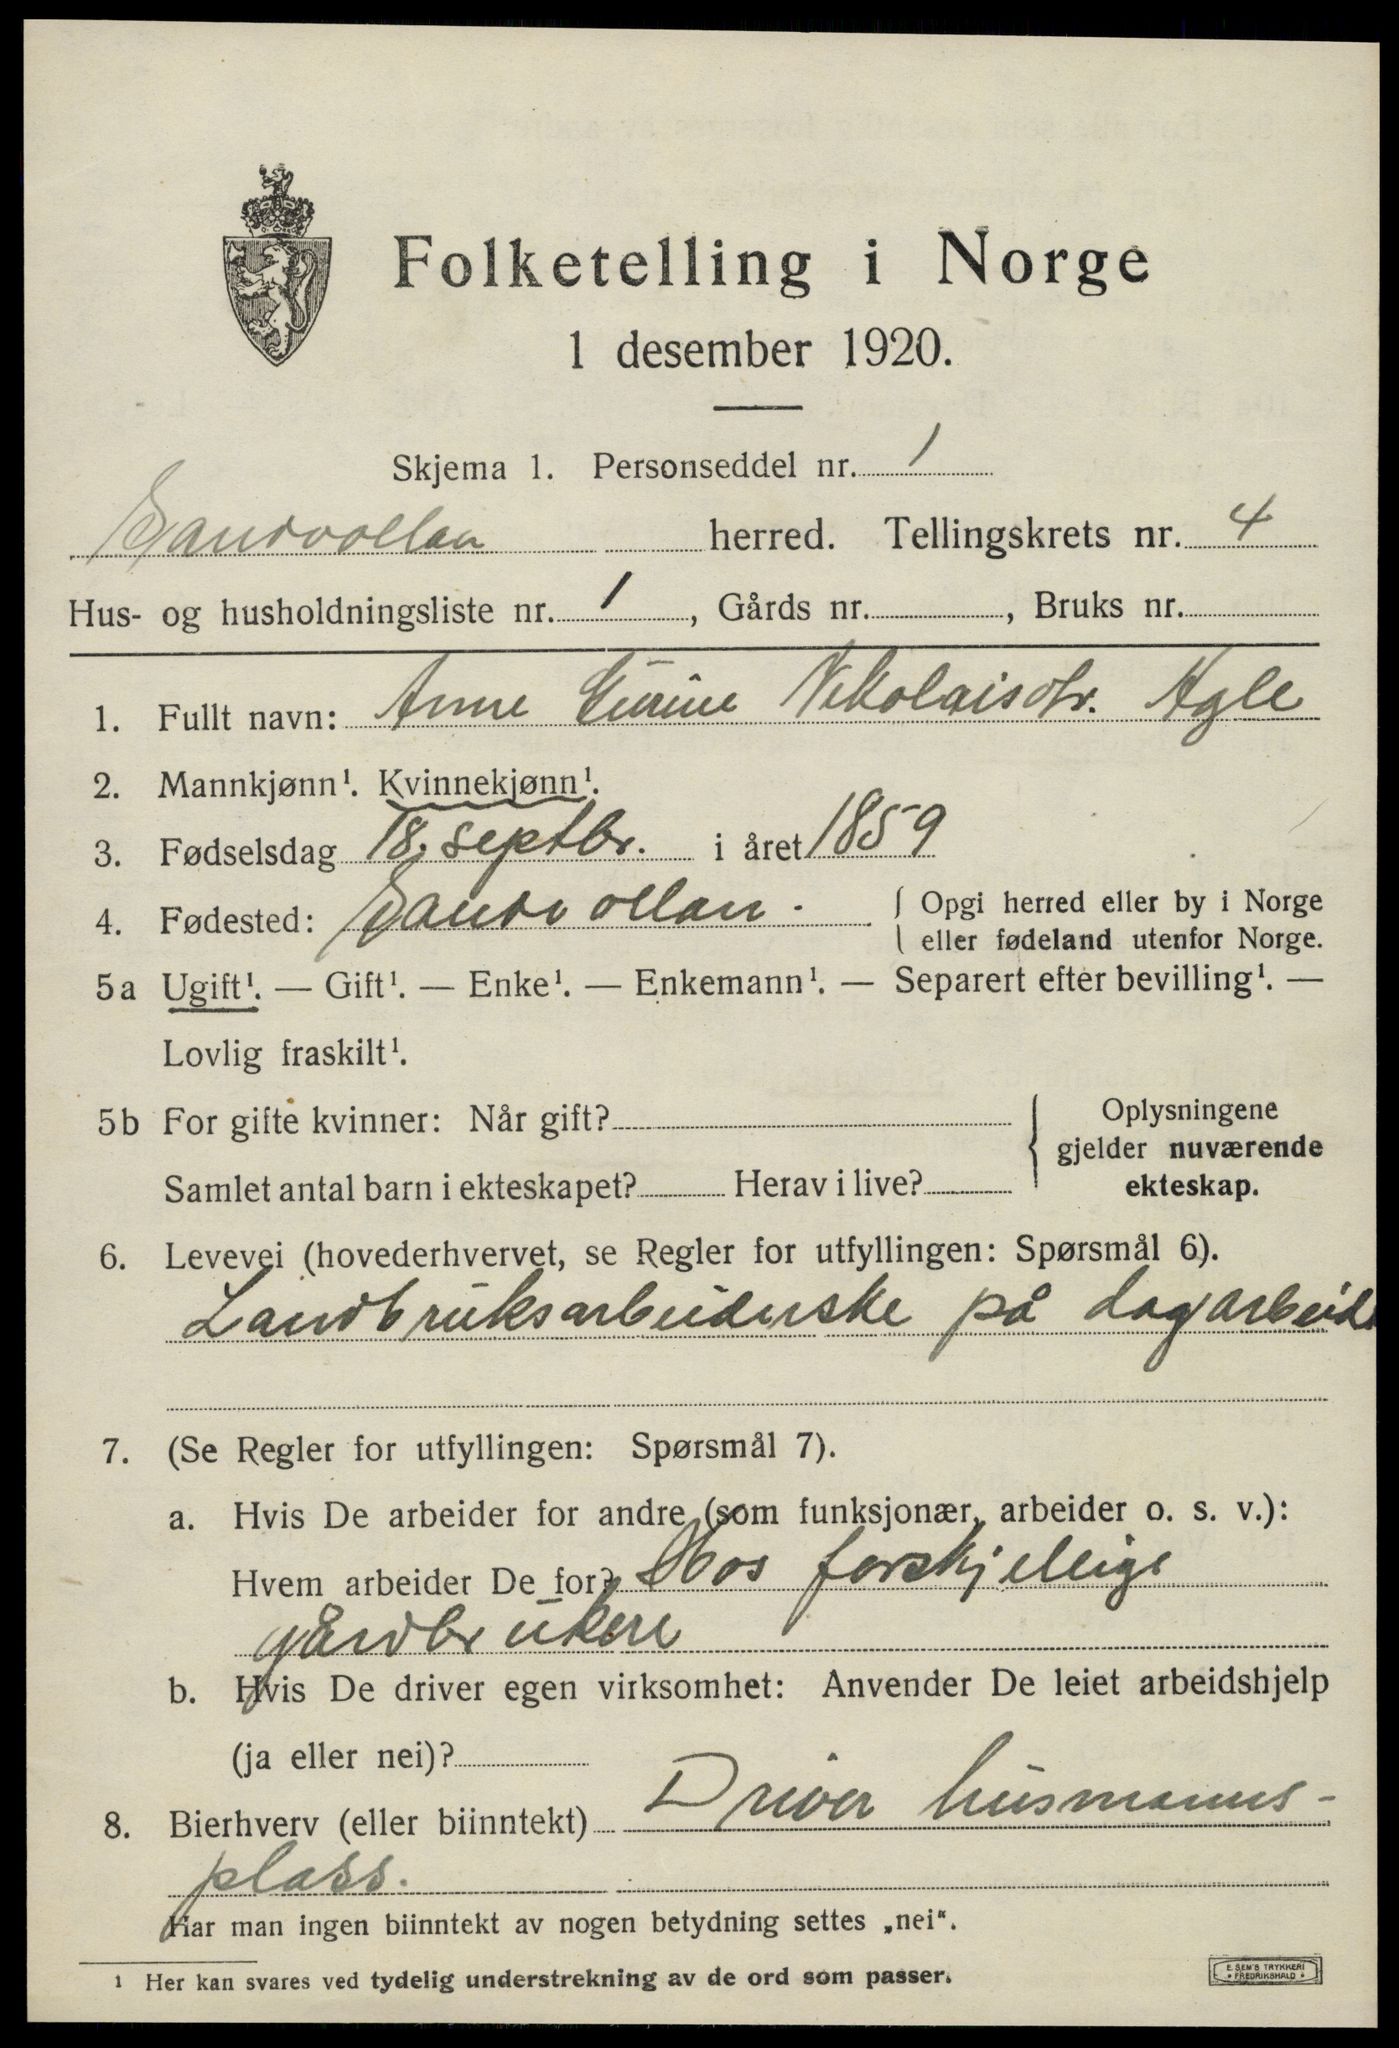 Folketelling i Norge
1 desember 1920.
Skjema 1. Personseddel nr. 1
Sandvollan herred. Tellingskrets nr. 4
Hus- og husholdningsliste nr. 1, Gårds nr. , Bruks nr.
1. Fullt navn: Anne Nikolaisdtr. Agle
2. Mannkjønn¹. Kvinnekjønn¹.
3. Fødselsdag 18. septbr. i året 1859
4. Fødested: Sandvollan. Opgi herred eller by i Norge
eller fødeland utenfor Norge.
5a Ugift¹. — Gift¹. — Enke¹. — Enkemann¹. — Separert efter bevilling¹. —
Lovlig fraskilt¹.
5b For gifte kvinner: Når gift? Oplysningene
gjelder nuværende
Samlet antal barn i ekteskapet? Herav i live? ekteskap.
6. Levevei (hovederhvervet, se Regler for utfyllingen: Spørsmål 6).
Landbruksarbeiderske på dagarbeide
7. (Se Regler for utfyllingen: Spørsmål 7).
a. Hvis De arbeider for andre (som funksjonær, arbeider o. s. v.):
Hvem arbeider De for? Hos forskjellige
gårdbrukere
b. Hvis De driver egen virksomhet: Anvender De leiet arbeidshjelp
(ja eller nei)?
8. Bierhverv (eller biinntekt) Driver husmanns-
plass.
Har man ingen biinntekt av nogen betydning settes „nei“.
¹ Her kan svares ved tydelig understrekning av de ord som passer.
E. SEM'S TRYKKERI
• FREDRIKSHALD •